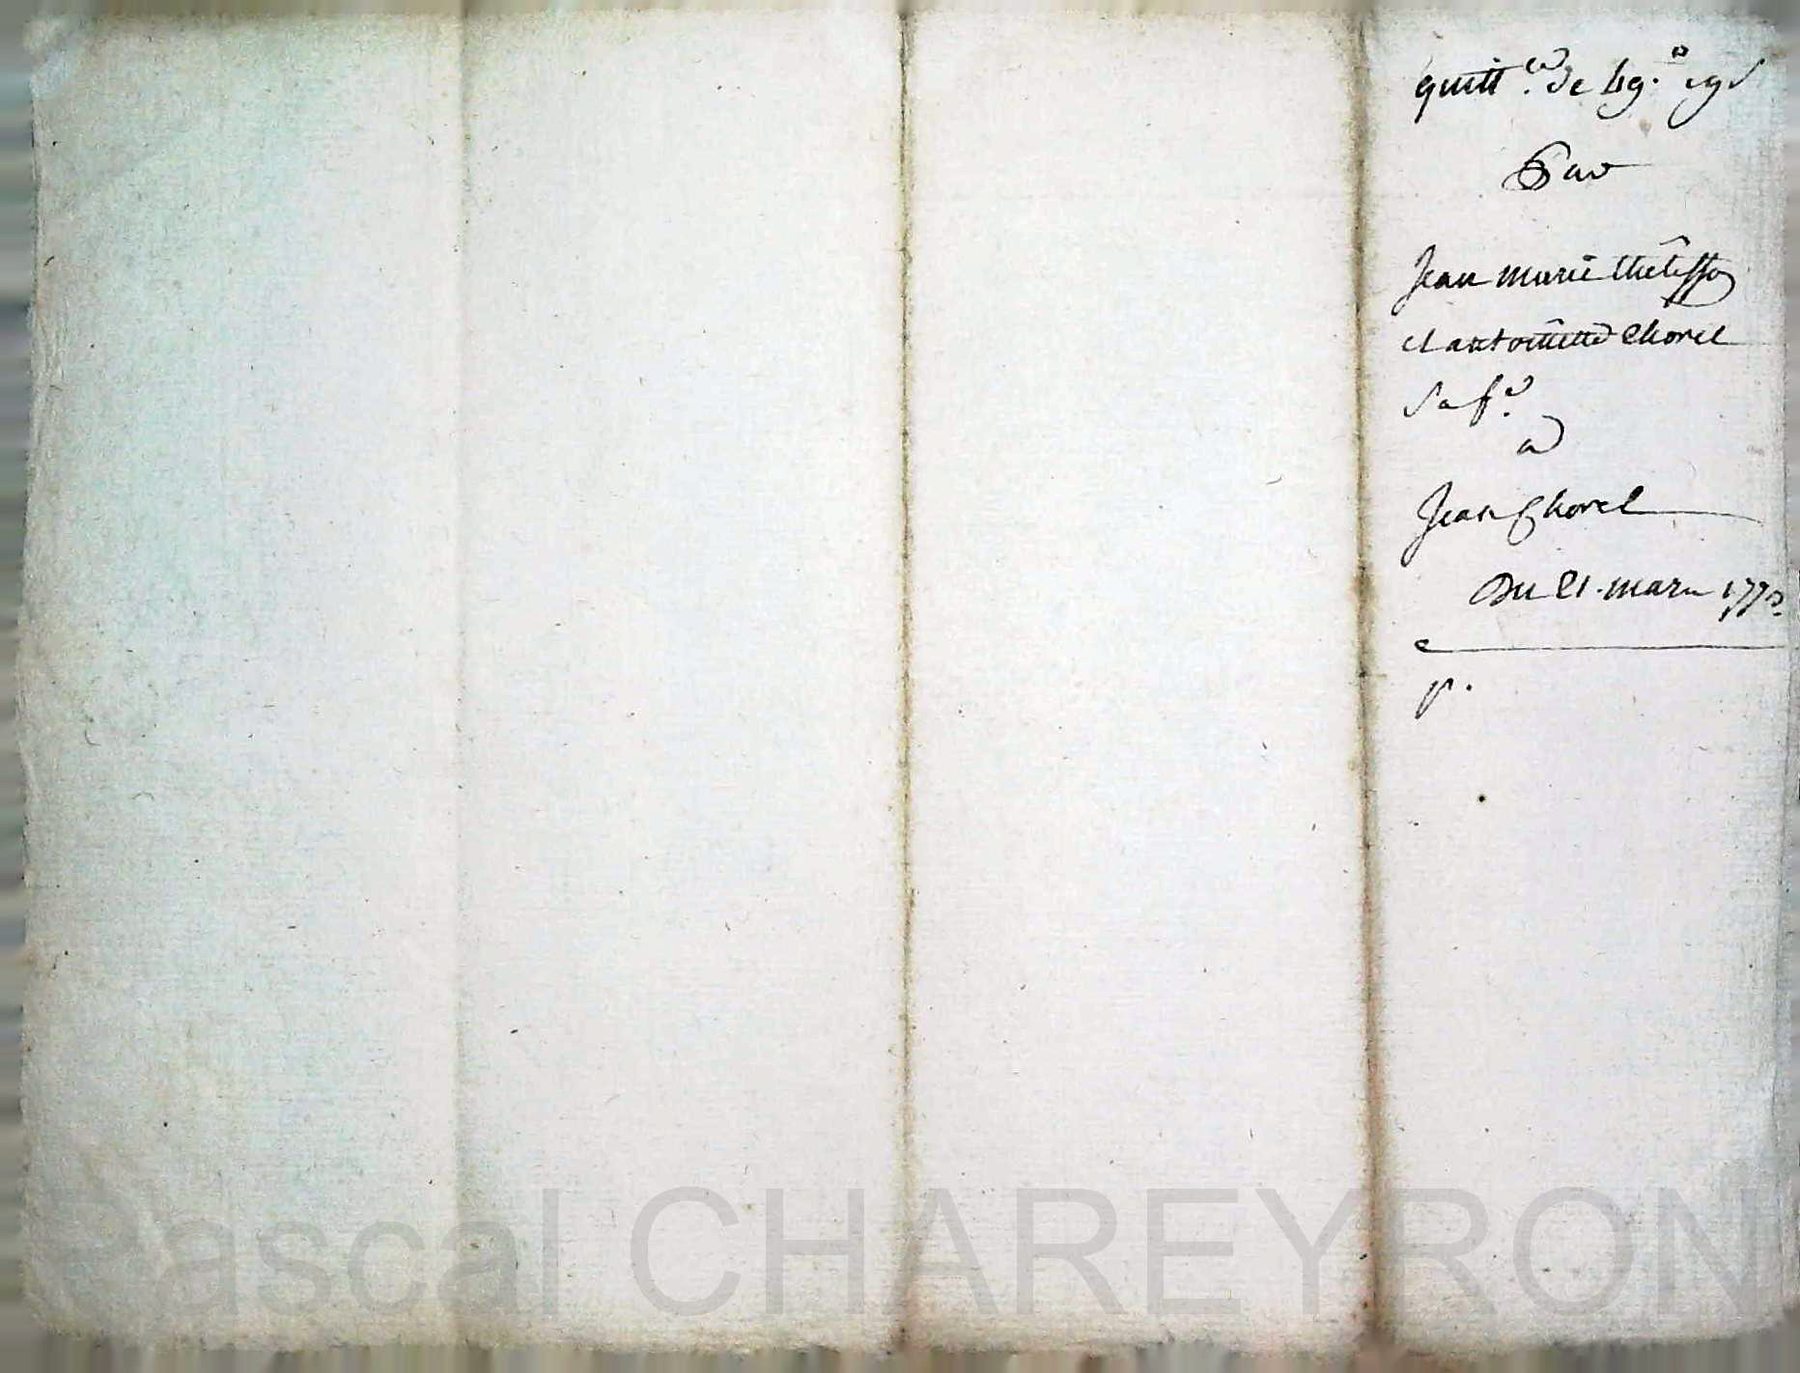 quitt.ce de
Par
Jean marie
et antoinette Chorel
Sa f.e
a
Jean Chorel
Du 21. mars 177
p.
Pascal CHAREYRON